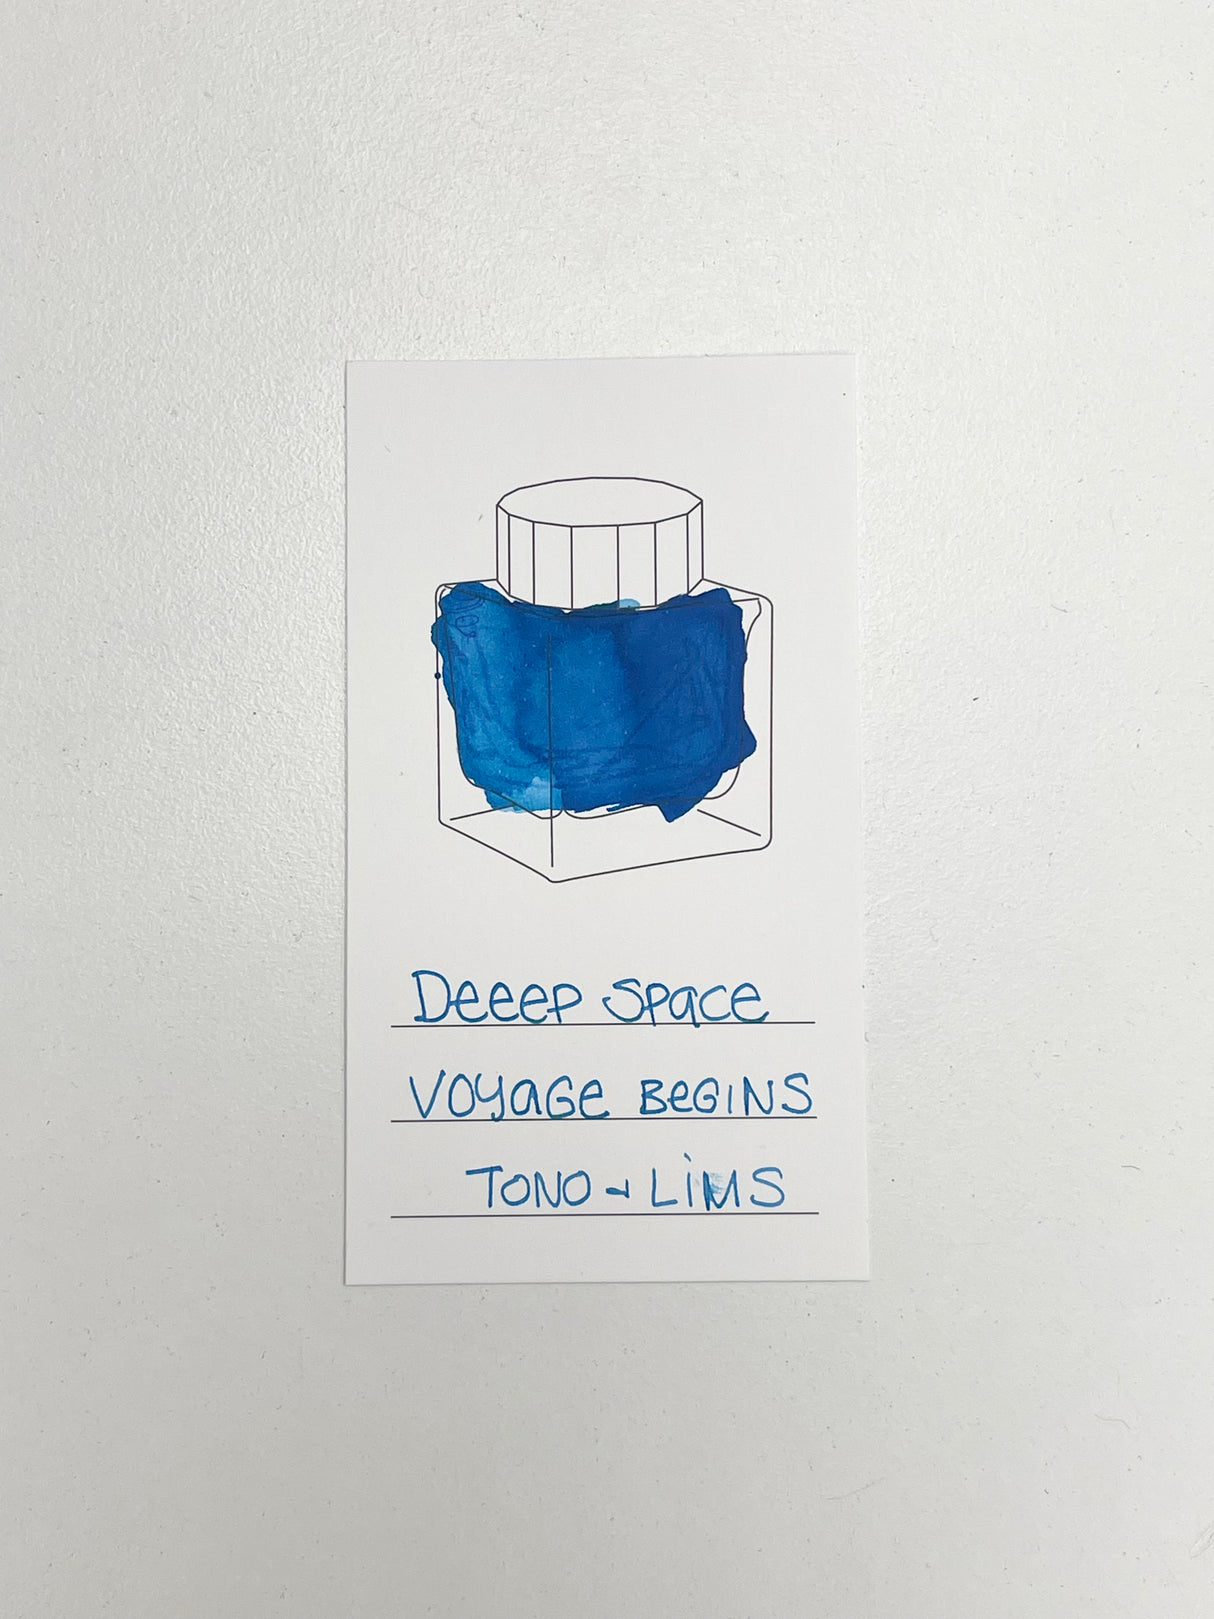 Deeep Space
Voyage Begins
Tono & Lims